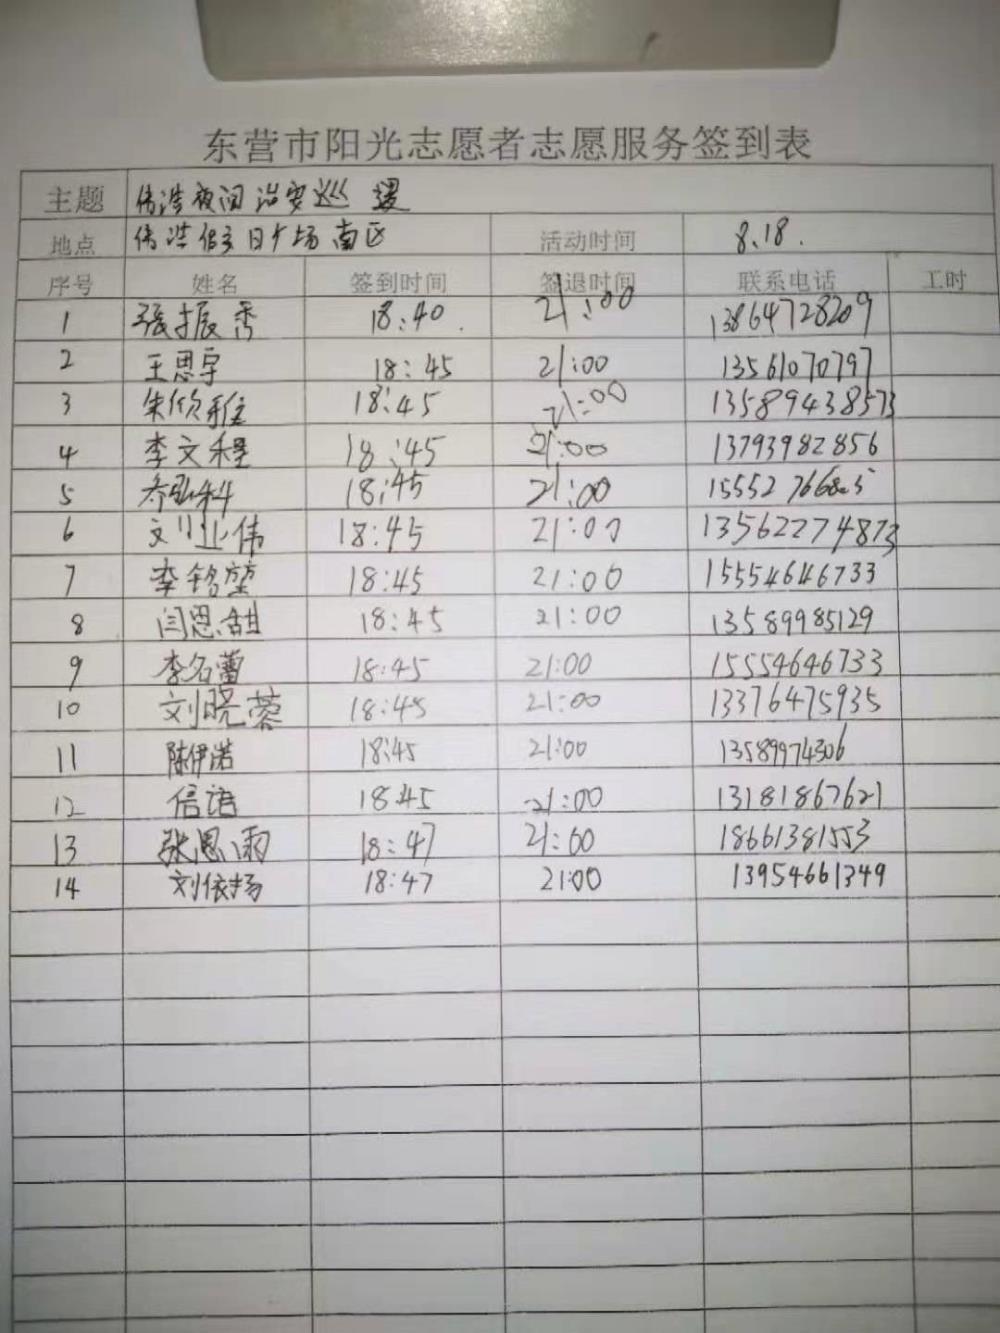 东营市阳光志愿者志愿服务签到表
主题 伟浩夜间治安巡逻
地点 伟浩假日广场南区 活动时间 8.18.
序号 姓名 签到时间 签退时间 联系电话 工时
1 张振秀 18:40. 21:00 13864728209
2 王思宇 18:45 21:00 13561070797
3 朱欣雅 18:45 21:00 13589438573
4 李文程 18:45 21:00 13793982856
5 18:45 21:00
6 刘业伟 18:45 21:00 13562274873
7 李铭堃 18:45 21:00 15554646733
8 闫恩甜 18:45 21:00 13589985129
9 李名蕾 18:45 21:00 15554646733
10 刘晓蓉 18:45 21:00 13376475935
11 陈伊诺 18:45 21:00 13589974306
12 信语 18:45 21:00 13181867627
13 张恩雨 18:47 21:00 18661381553
14 刘依扬 18:47 21:00 13954661349